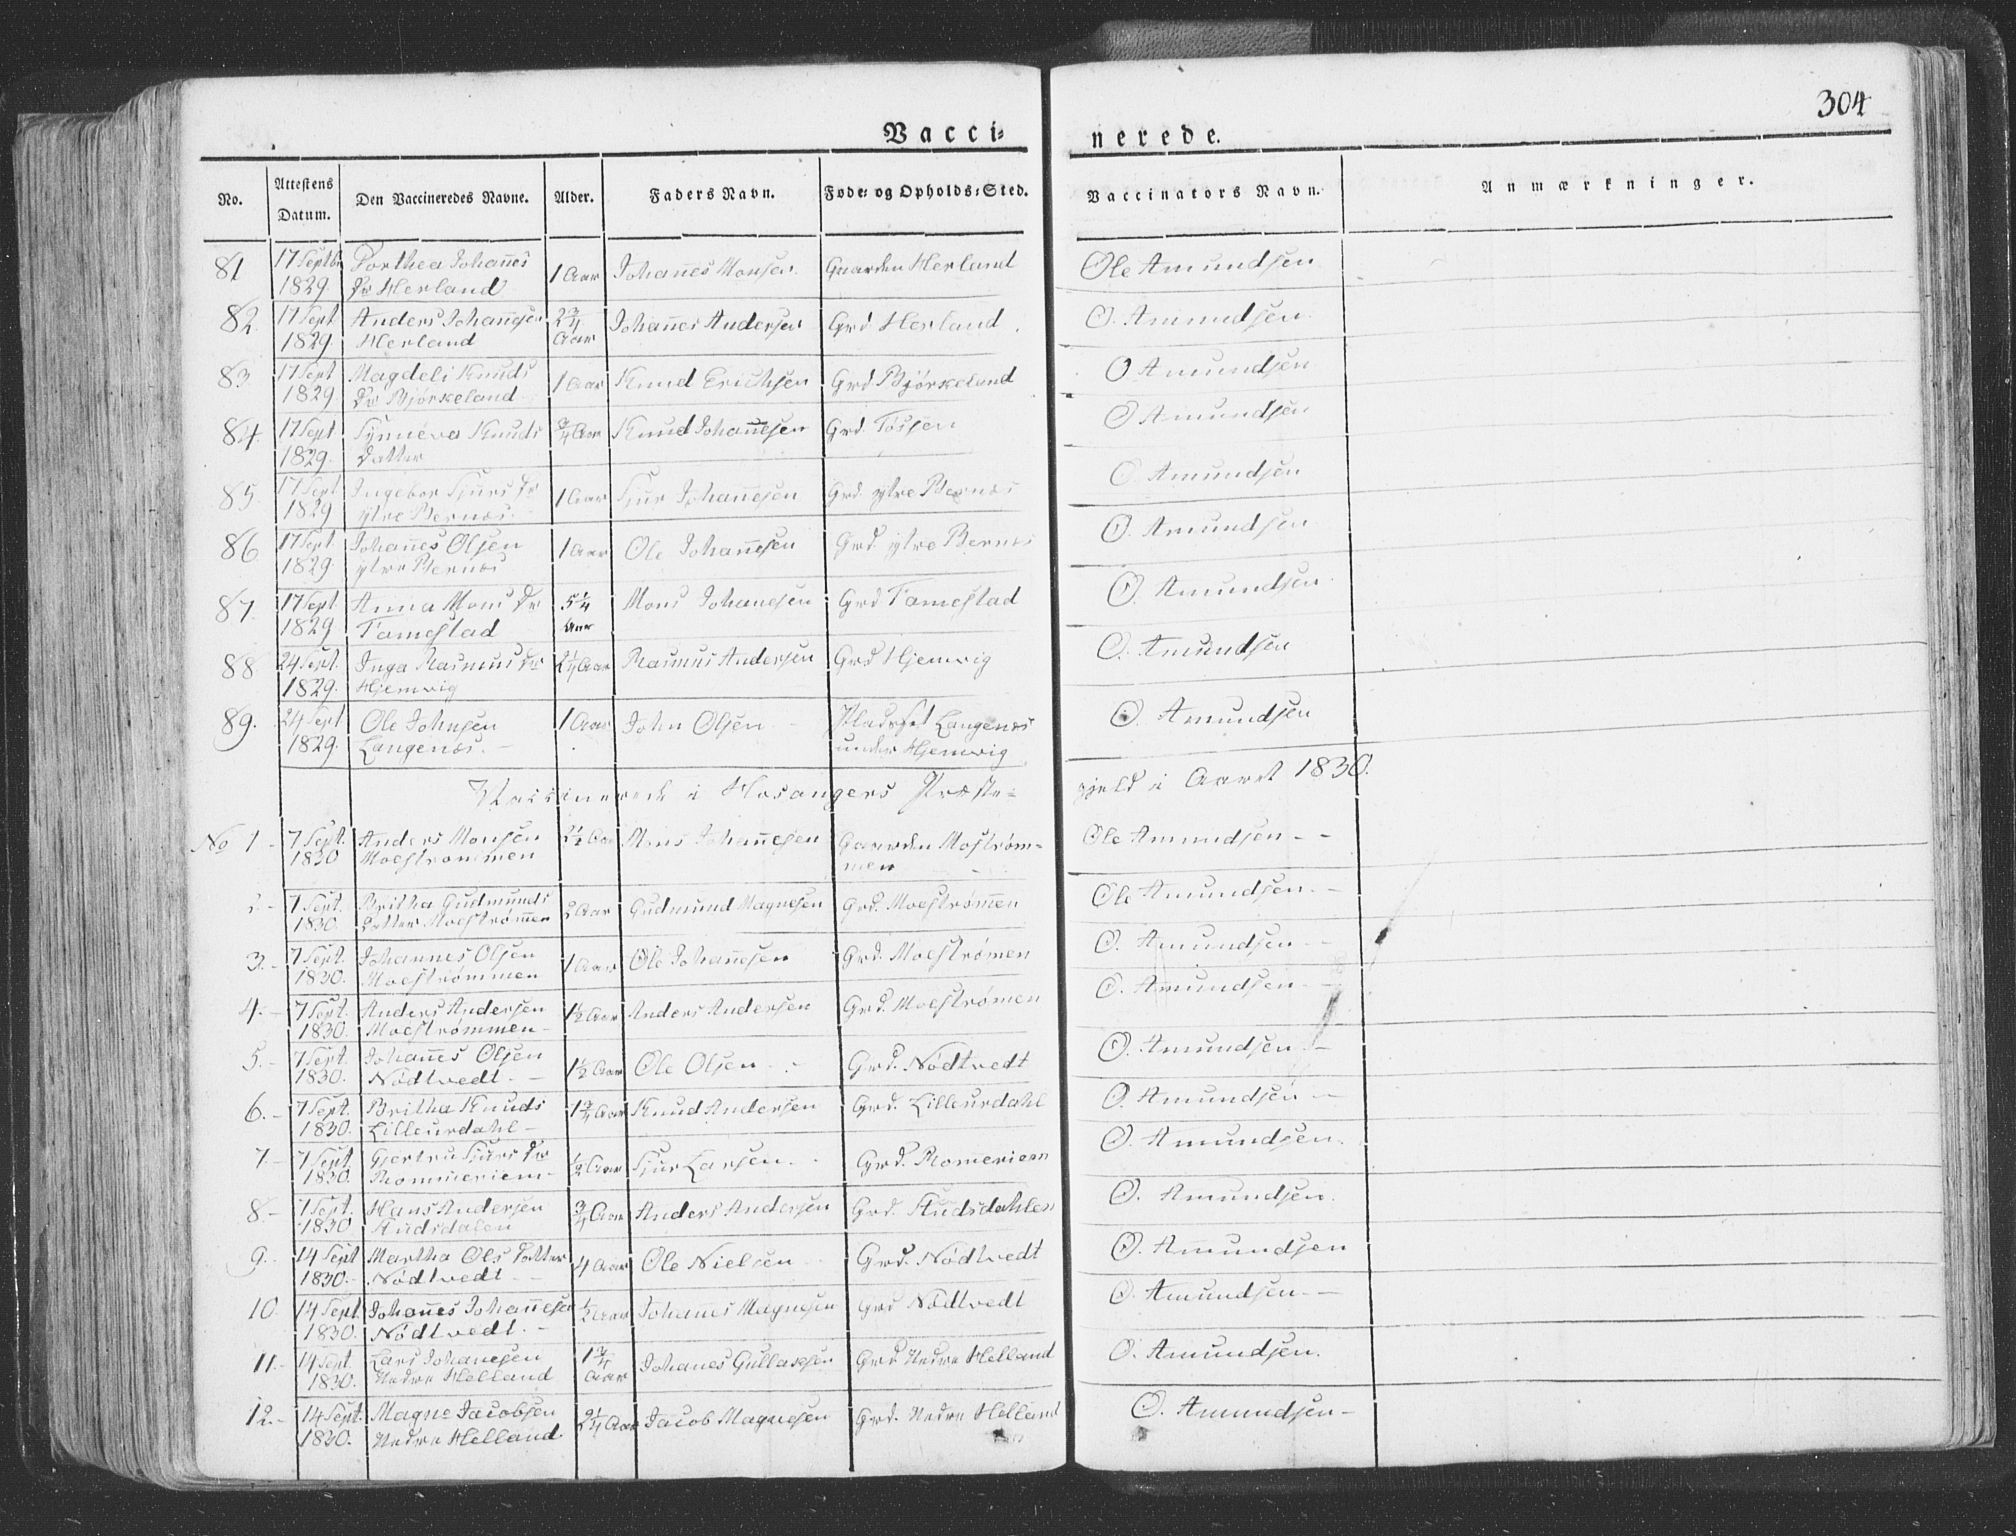 304
Vacci=
nerede.
No. | Attestens Datum. | Den Vaccineredes Navne. | Alder. | Faders Navn. | Føde- og Opholds-Sted. | Vaccinators Navn. | Anmærkninger.
81 | 17 Septbr 1829 | Dorthea Johañes Dr Herland | 1 Aar | Johañes Monsen | Gaarden Herland | Ole Amundsen
82. | 17 Sept 1829. | Anders Johañesen Herland | 2 3/4 Aar | Johañes Andersen | Grd Herland. | O. Amundsen.
83 | 17 Sept 1829. | Magdeli Knuds Dr Bjørkeland | 1 Aar | Knud Erichsen | Grd Bjørkeland | O Amundsen
84 | 17 Sept 1829. | Synneva Knuds Datter | 3/4 Aar | Knud Johañesen | Grd. Tossen | O Amundsen
85. | 17 Sept 1829 | Ingebor Sjurs Dr ytre Bernæs. | 1 Aar | Sjur Johañesen | Grd. ytre Bernæs | O Amundsen
86 | 17 Sept 1829. | Johañes Olsen ytre Bernæs | 1 Aar | Ole Johañesen | Grd ytre Bernæs | O. Amundsen
87. | 17 Sept 1829 | Anna Mons Dr Tamestad | 5 1/4 Aar | Mons Johanesen | Grd Tamestad | O. Amundsen.
88 | 24 Sept. 1829. | Inga Rasmus Dr Hjemvig | 2 1/4 Aar | Rasmus Andersen | Grd Hjemvig | O. Amundsen
89. | 24 Sept 1829. | Ole Johnsen Langenæs. | 1 Aar | John Olsen | Pladset Langenæs under Hjemvig | O. Amundsen
Vaccinerede i Hosangers Præste=
gjeld i Aaret 1830.
No 1 | 7 Sept. 1830 | Anders Monsen Moestrommen | 2 1/2 Aar | Mons Johañesen | Gaarden Mostrøm=men | Ole Amundsen
2 | 7 Sept. 1830. | Britha Gudmunds Datter Moestrømmen | 2 Aar | Gudmund Magnesen | Grd. Moestrømen | Ole Amundsen.
3. | 7 Sept. 1830. | Johannes Olsen Moestrømmen | 1 Aar | Ole Johañesen | Grd. Moestrømen | O. Amundsen
4. | 7 Sept. 1830. | Anders Andersen Moestrømmen | 1 1/2 Aar | Anders Andersen | Grd. Moestrømen | O. Amundsen
5. | 7 Sept. 1830. | Johañes Olsen Nødtvedt. | 1 1/2 Aar | Ole Olsen | Grd. Nødtvedt | O. Amundsen
6. | 7 Sept. 1830. | Britha Knuds Lilleurdahl | 1 3/4 Aar | Knud Andersen | Grd. Lilleurdahl | O. Amundsen
7. | 7 Sept 1830. | Gjertru Sjurs Dr Rommeriem | 1/2 Aar | Sjur Larsen | Grd. Romeriem | O. Amundsen.
8. | 7 Sept. 1830 | Hans Andersen Audsdalen | 3/4 Aar | Anders Andersen | Grd. Audsdahlen | O. Amundsen.
9. | 14 Sept 1830. | Martha Ols Datter Nødtvedt | 4 Aar | Ole Nielsen | Grd. Nødtvedt | O. Amundsen
10. | 14 Sept 1830. | Johañes Johañesen Nødtvedt. | 1/2 Aar | Johanes Magnesen | Grd Nødtvedt | O. Amundsen.
11. | 14 Sept 1830. | Lars Johanesen Nedre Helland | 1 3/4 Aar | Johanes Gullaksen | Grd Nedre Helland | O. Amundsen.
12. | 14 Sept. 1830. | Magne Jacobsen Nedre Helland. | 2 1/4 Aar | Jacob Magnesen | Grd. Nedre Helland | O. Amundsen